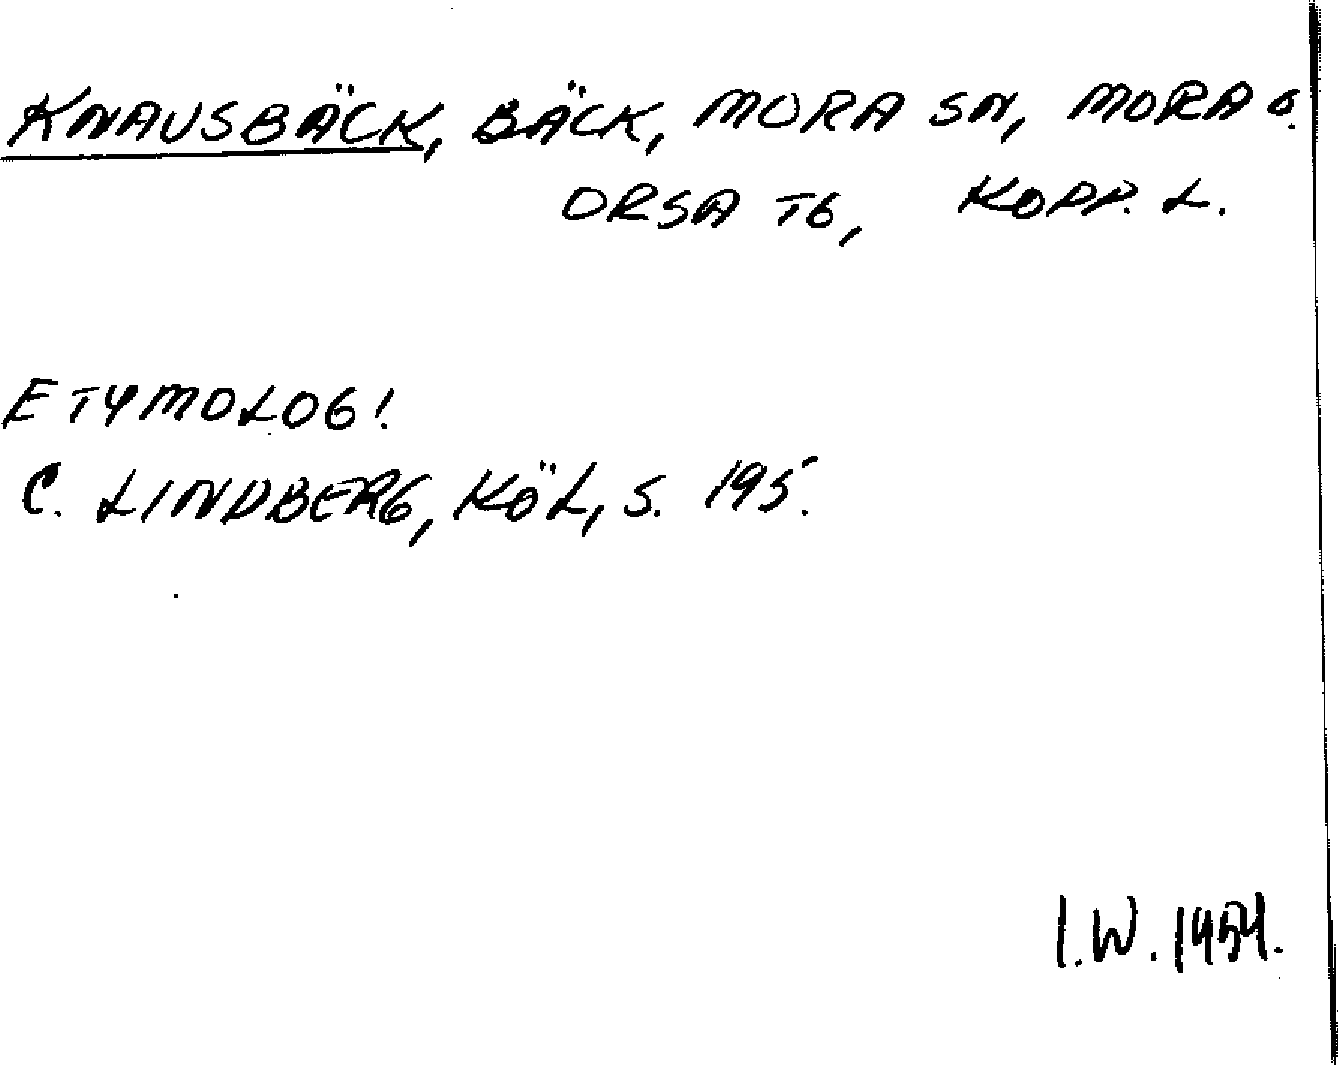 KNAUSBÄCK, BÄCK, MORA SN, MORA O.
ORSA TG, KOPP. L.
ETYMOLOGI.
C. LINDBERG, KÖL, S. 195.
I.W. 1954.